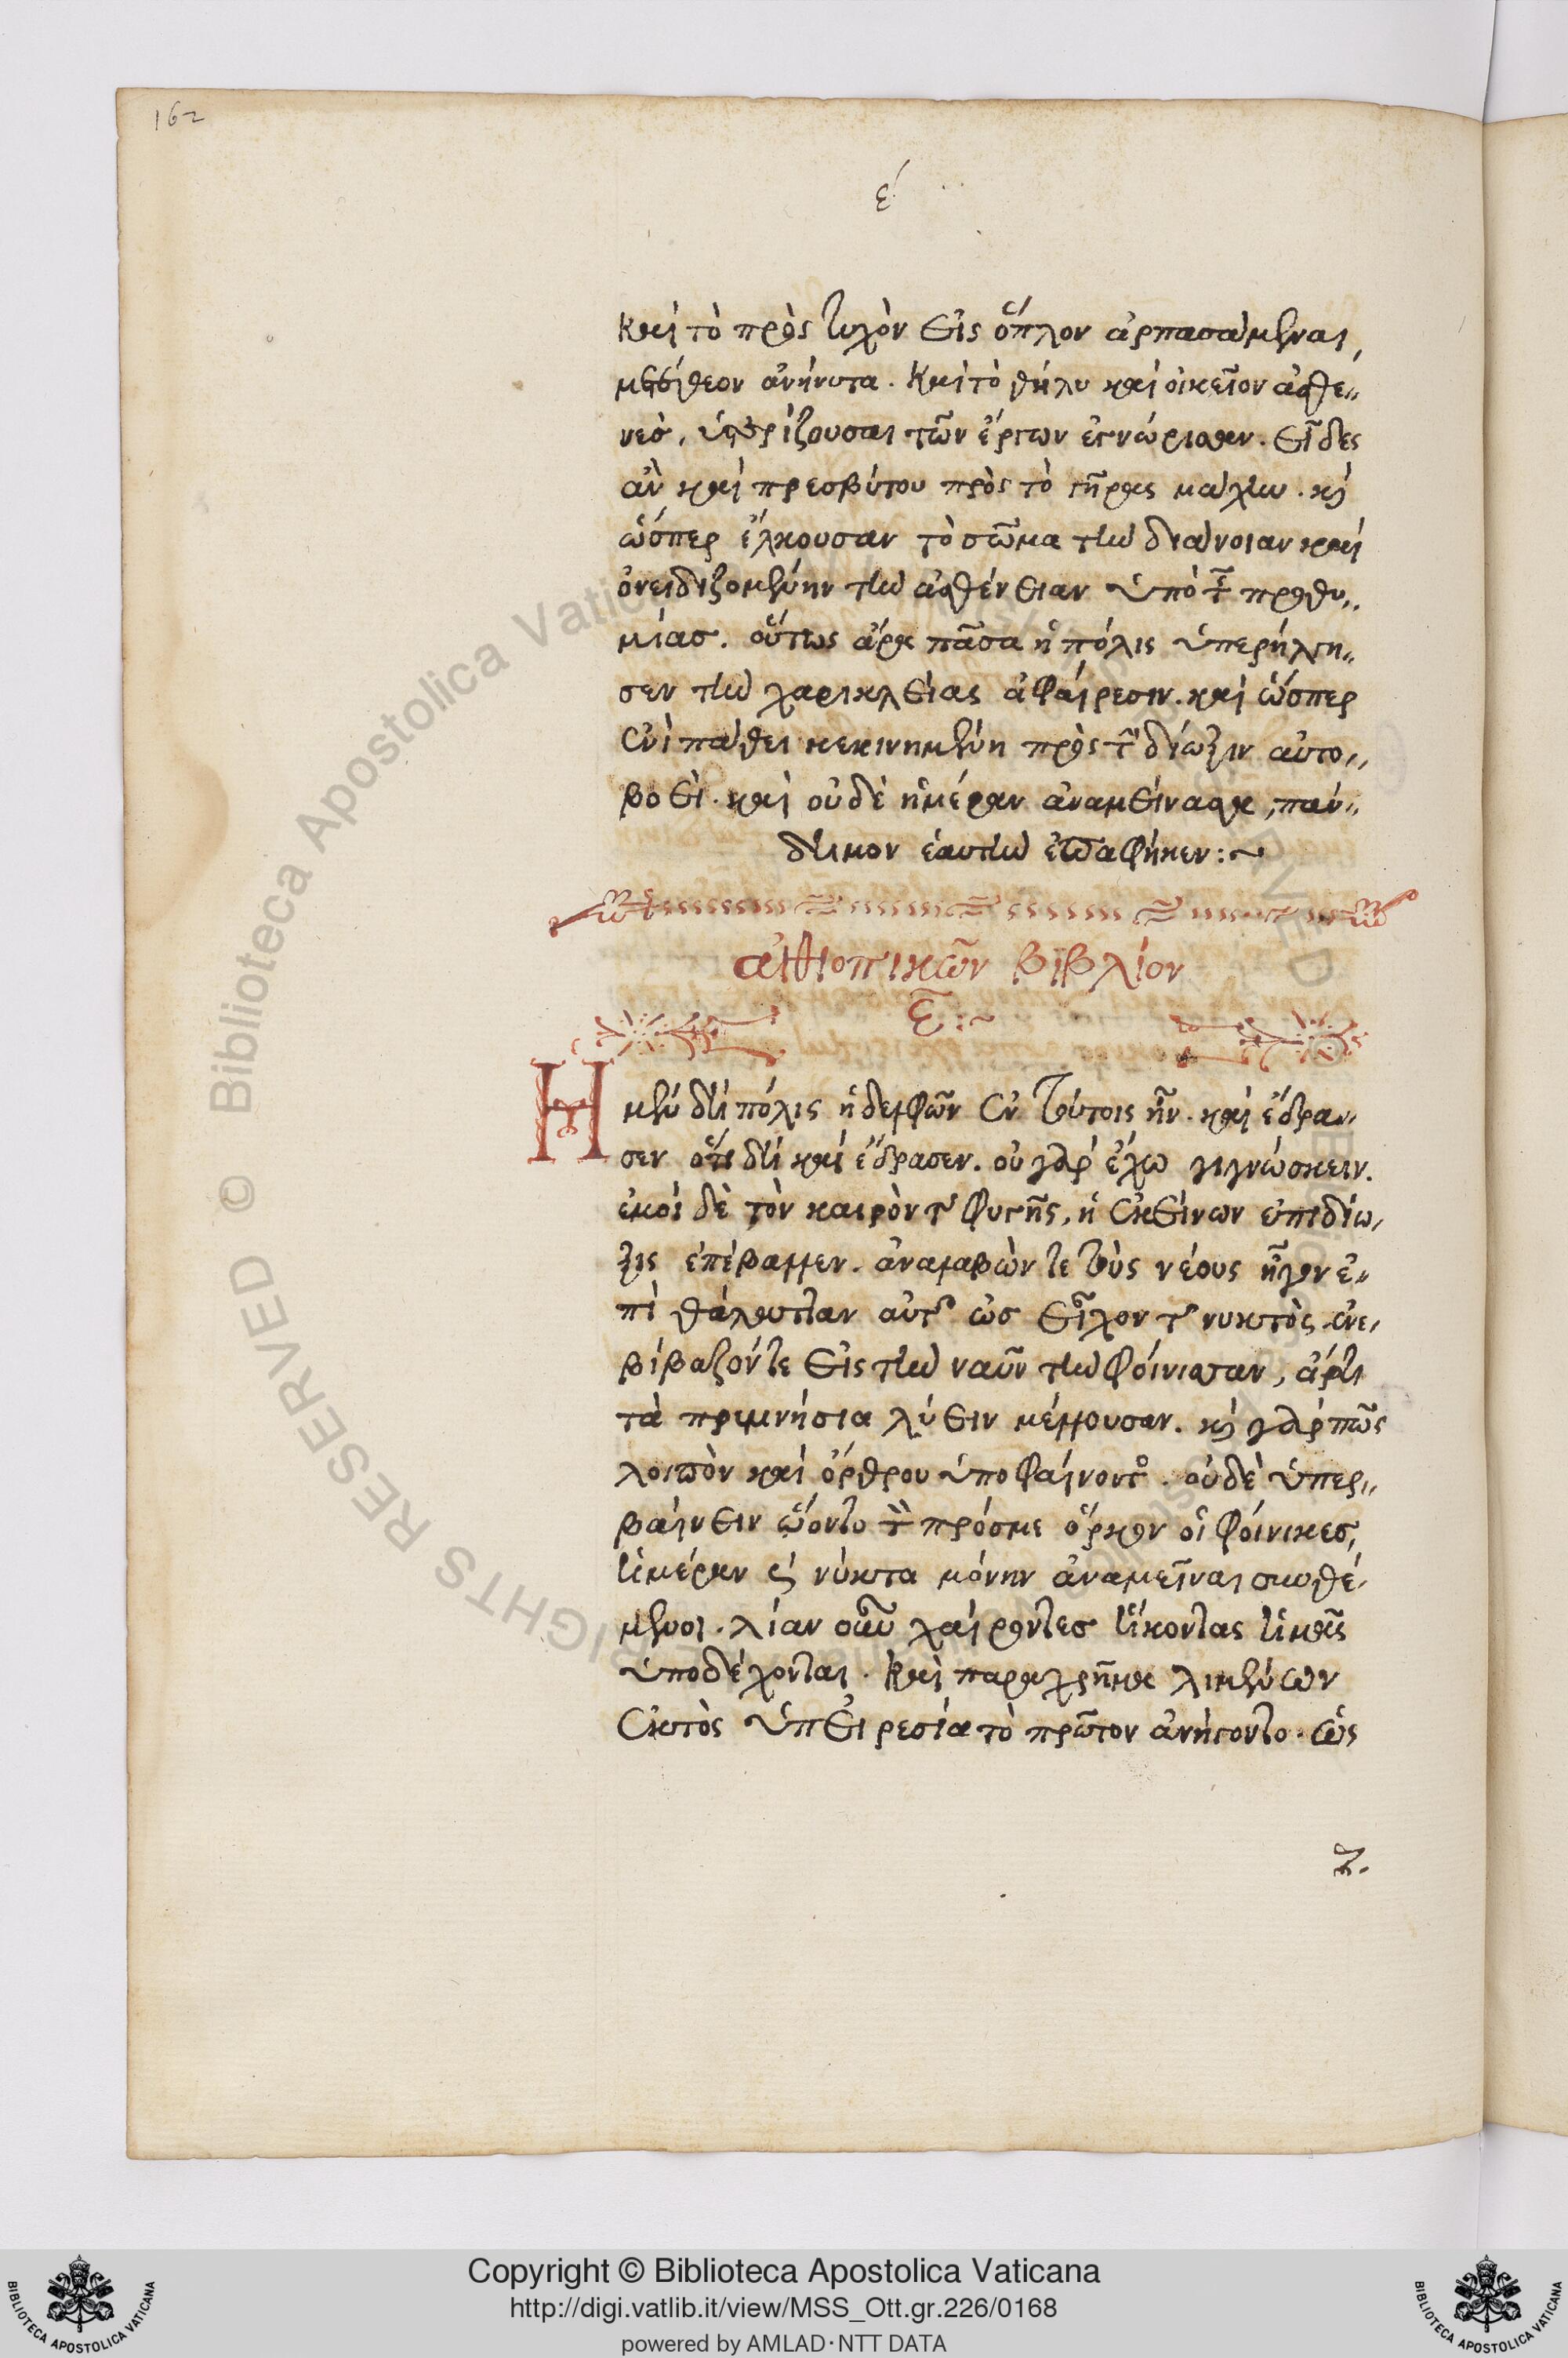 162
ε´
καὶ τὸ πρὸς τυχὸν εἰς ὅπλον ἁρπασάμεναι,
μετέθεον ἀνήνυτα. καὶ τὸ θῆλυ καὶ οἰκεῖον ἀσθε„
νὲσ, ὑστερίζουσαι τῶν ἔργων ἐγνώρισαν. εἶδες
ἂν καὶ πρεσβύτου πρὸς τὸ γῆρας μάχην. κ̀
ὥσπερ ἕλκουσαν τὸ σῶμα τὴν διάνοιαν καὶ
ὀνειδιζομένην τὴν ἀσθένειαν ὑπὸ τῆς προθυ„
μίασ. οὕτως ἄρα πᾶσα ἡ πόλις ὑπερήλγη„
σεν τὴν χαρικλείας ἀφαίρεσιν. καὶ ὥσπερ
ἑνὶ πάθει κεκινημένη πρὸς τὴν δίωξιν αὐτο„
βοεὶ. καὶ οὐδὲ ἡμέραν ἀναμείνασα, παν„
δημον ἑαυτὴν ἐπαφῆκεν:~
αἰθιοπικῶν βιβλίον
ε:~
Ἡ μὲν δὴ πόλις ἡ δελφῶν ἐν τούτοις ἦν. καὶ ἔδρα„
σεν ὅτι δὴ καὶ ἔδρασεν. οὐ γὰρ ἔχω γιγνώσκειν.
ἐμοὶ δὲ τὸν καιρὸν τῆς φυγῆς, ἡ ἐκείνων ἐπιδίω,
ξις ἐπέβαλλεν. ἀναλαβών τε τοὺς νέους ἦγον ἐ„
πὶ θάλατταν αὐτῆς ὡσ εἶχον τῆς νυκτὸς ἐνε,
βίβαζόν τε εἰς τὴν ναῦν τὴν φοίνισσαν, ἄρτι
τὰ πρυμνήσια λύειν μέλλουσαν. κ̀ γάρ πως
λοιπὸν καὶ ὄρθρου ὑποφαίνοντος. οὐδὲ ὑπερ„
βαίνειν ᾤοντο τὸν πρόσμε ὅρκον οἱ φοίνικεσ,
ἡμέραν κ̀ νύκτα μόνην ἀναμεῖναι συνθέ,
μενοι. λίαν οὖν χαίροντεσ ἥκοντας ἡμᾶς
ὑποδέχονται. καὶ παραχρῆμα λιμένων
ἐκτὸς ὑπ εἰρεσία τὸ πρῶτον ἀνήγοντο. ὡς
© Biblioteca Apostolica Vaticana
RIGHTS RESERVED
Copyright © Biblioteca Apostolica Vaticana
http://digi.vatlib.it/view/MSS_Ott.gr.226/0168
powered by AMLAD·NTT DATA
BIBLIOTECA APOSTOLICA VATICANA
BIBLIOTECA APOSTOLICA VATICANA